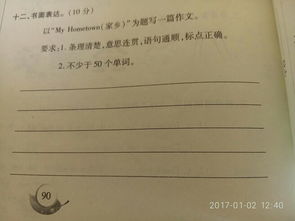 十二、书面表达。(10分)
以“My Hometown(家乡)”为题写一篇作文。
要求:1. 条理清楚,意思连贯,语句通顺,标点正确。
2. 不少于50个单词。
90
2017-01-02 12:40